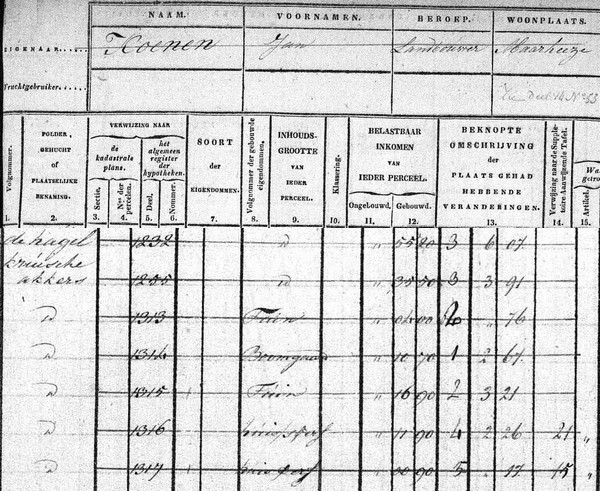 NAAM. VOORNAMEN. BEROEP. WOONPLAATS.
EIGENAAR..... Koenen Jan Landbouwer Maarheeze
Vruchtgebruiker..... Zie Deel 14 N° 53
Volgnommer. POLDER, GEHUCHT of PLAATSELIJKE BENAMING. VERWIJZING NAAR de kadastrale plans. het algemeen register der hypotheken. Sectie. Nos der perceelen. Deel. Nommer. SOORT der EIGENDOMMEN. Volgnommer der gebouwde eigendommen. INHOUDS-GROOTTE VAN IEDER PERCEEL. Klassering. BELASTBAAR INKOMEN VAN IEDER PERCEEL. Ongebouwd. Gebouwd. BEKNOPTE OMSCHRIJVING der PLAATS GEHAD HEBBENDE VERANDERINGEN. Verwijzing naar de Suppletoire Aanwijzende Tafel. Artikel.
1. 2. 3. 4. 5. 6. 7. 8. 9. 10. 11. 12. 13. 14. 15.
de hugel 1232 D " 55 20 3 6 07
kruische
akkers 1255 D " 35 50 3 3 91
D 1313 Tuin " 04 00 2 " 76
D 1314 Boomgaard " 10 70 1 2 67
D 1315 Tuin " 16 90 2 3 21
D 1316 " 11 90 4 2 26 21 "
D 1317 huis & erf " 00 90 5 " 17 15 "